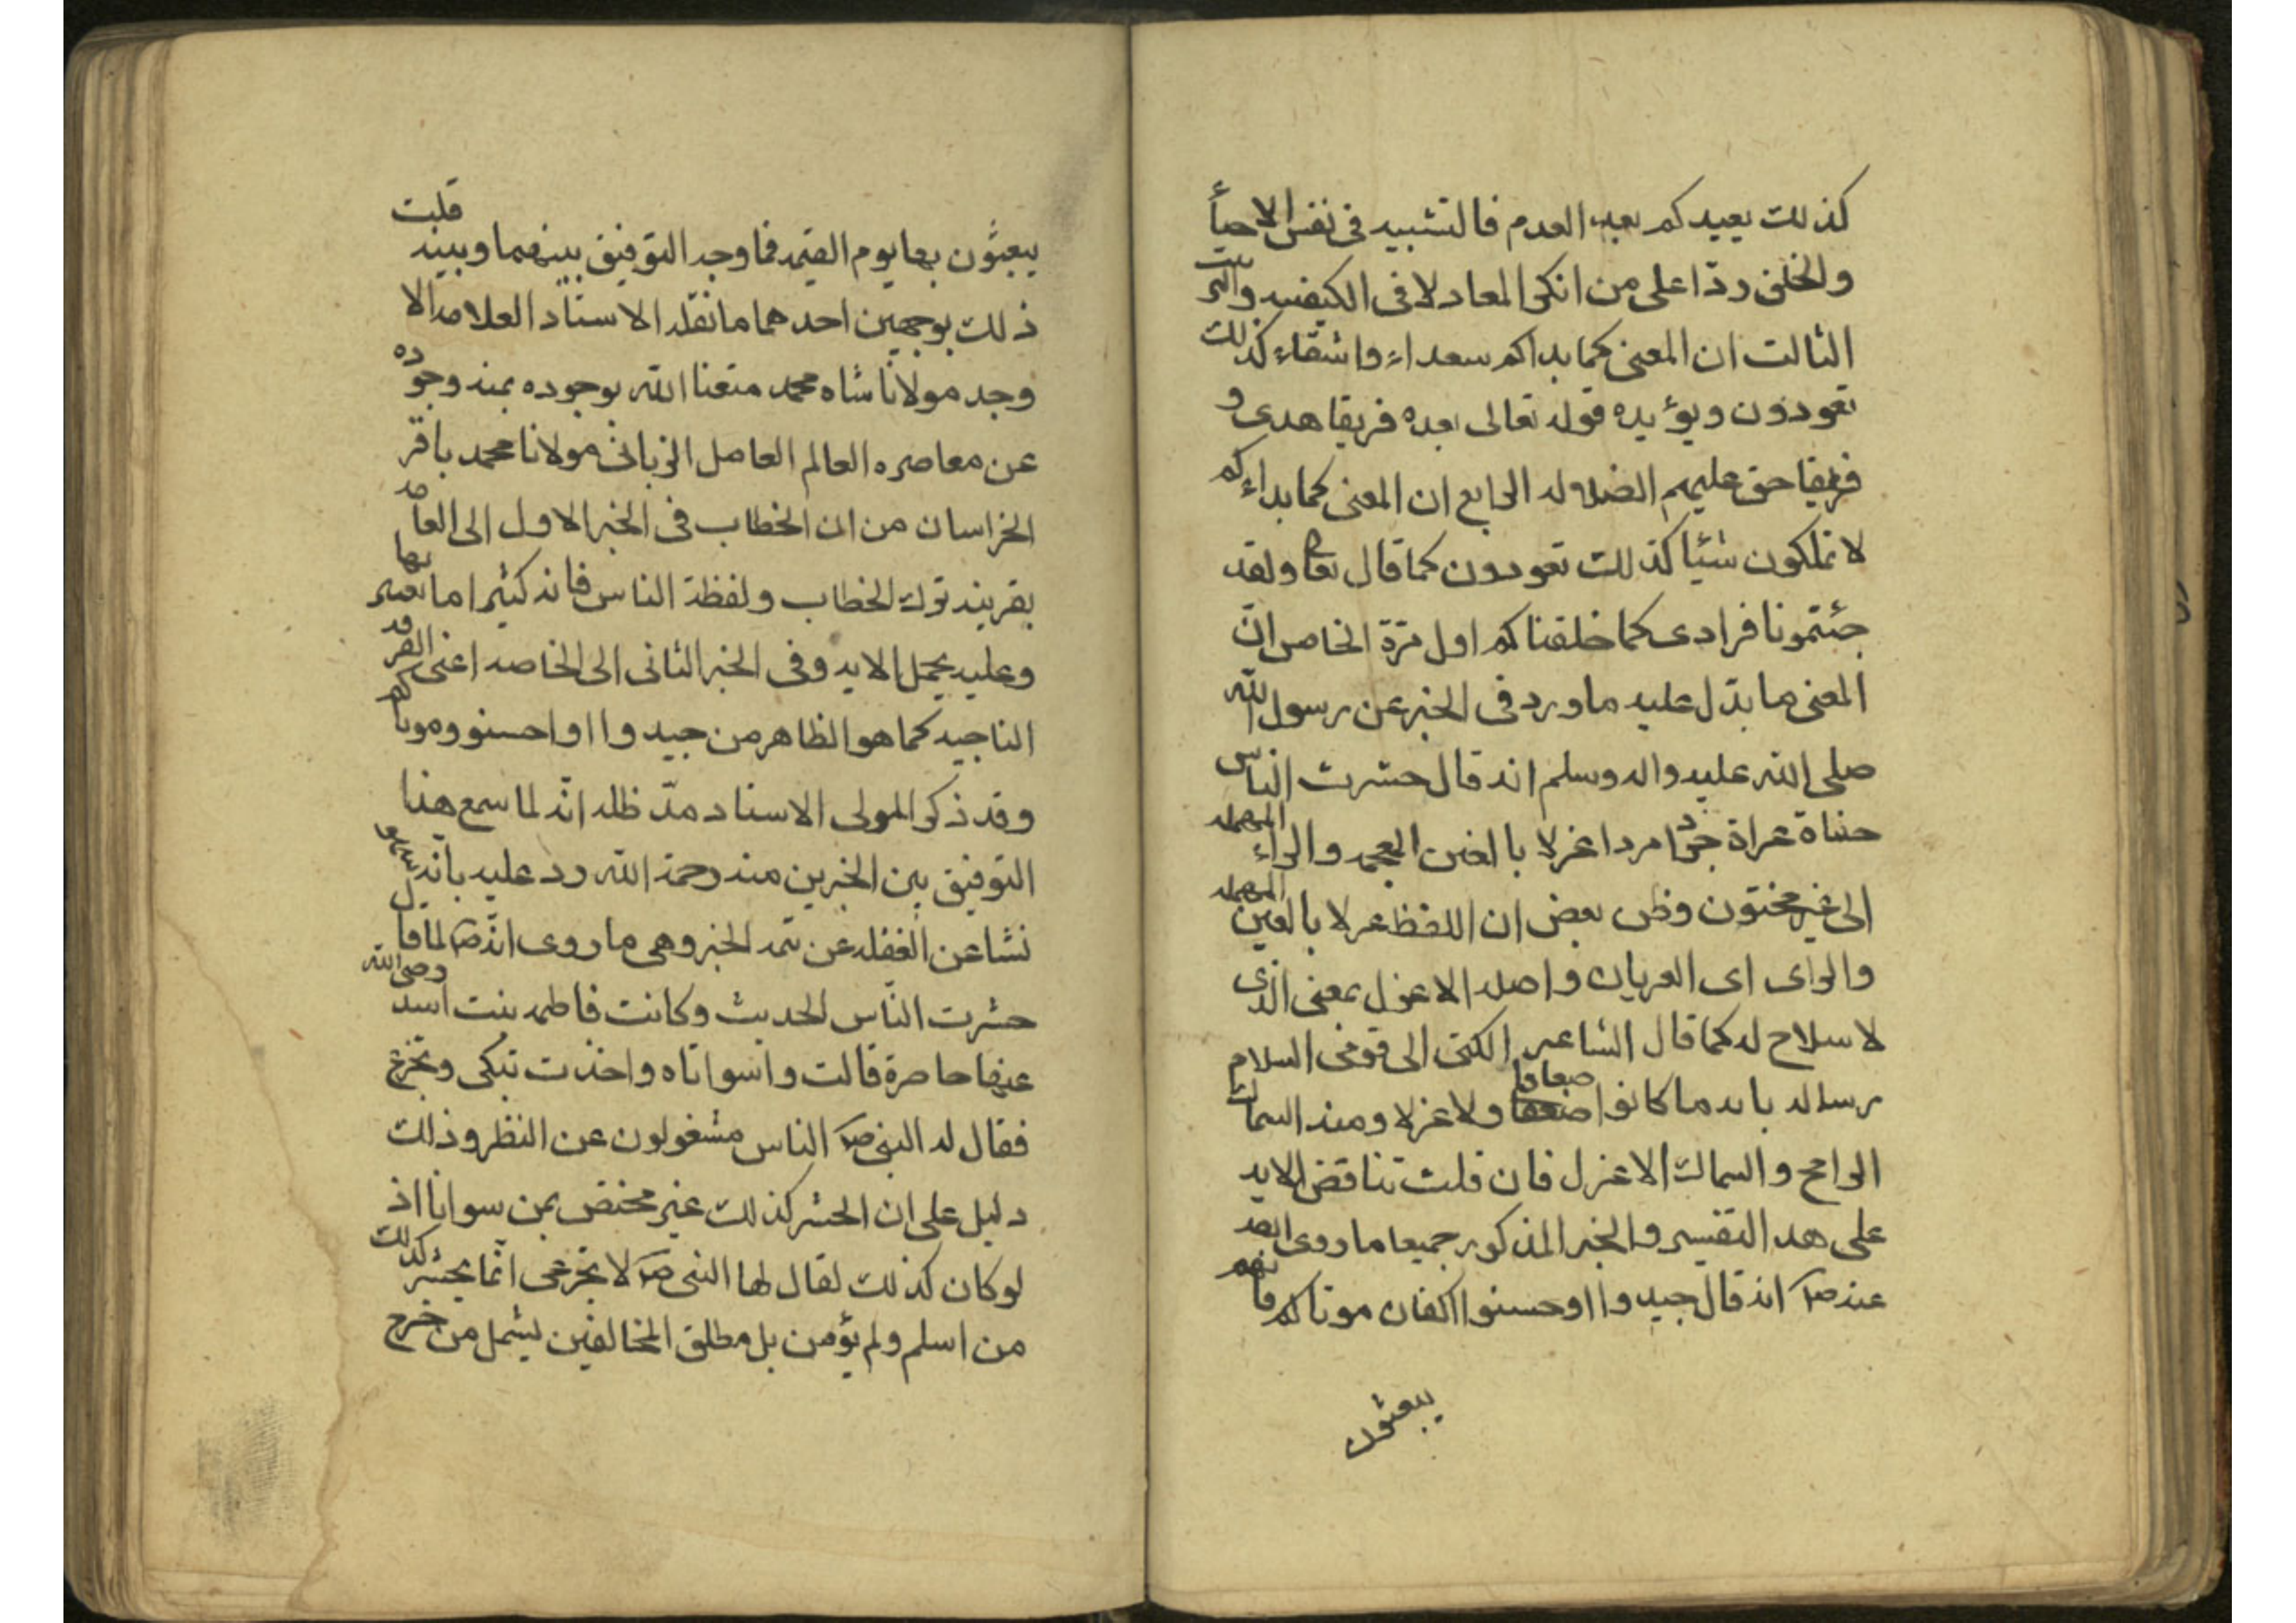 كذلك يعيدكم بعد العدم فالتشبيه فى نفس الاحيأ
والخلق ردّا على من انكر المعاد لا فى الكيفيه والترتيب
الثالث ان المعنى كما بداكم سعداء واشقاء كذلك
تعودون ويؤيده قوله تعالى بعده فريقا هدى و
فريقا حق عليهم الضلوله الرابع ان المعنى كما بداءكم
لا تملكون شيئا كذلك تعودون كما قال تعا ولقد
جئتمونا فرادى كما خلقناكم اول مرّة الخامس انّ
المعنى ما يدّل عليه ما ورد فى الخبر عن رسول الله
صلى الله عليه واله وسلم انه قال حشرت النّاس
حفاة عراة جردا مردا غرلا بالغين المعجمه والراء المهمله
اى غير مختون وظن بعض ان اللفظ عزلا بالعين المهمله
والزاى اى العريان واصله الاعزل بمعنى الذى
لا سلاح له كما قال الشاعر الكنى الى قومى السلام
رساله بايه ما كانوا ضعافا ولا عزلا ومنه السماك
الرامح والسماك الاعزل فان قلت تناقض الايه
على هذا التفسير والخبر المذكور جميعا ما روى ايضه
عنه صلعم انه قال جيدوا او حسنوا اكفان موتاكم فانهم
يبعثون
يبعثون بها يوم القيمه فما وجه التوفيق بينهما وبينه قلت
ذلك بوجهين احدهما ما نقله الاستاد العلامه الا
وجد مولانا شاه محمد متعنا الله بوجوده بمنه وجوده
عن معاصره العالم العامل الربانى مولانا محمد باقر
الخراسان من ان الخطاب فى الخبر الاول الى العامه
بقرينه ترك الخطاب ولفظة الناس فانه كثيرا ما يعبر بها
وعليه يحمل الايه وفى الخبر الثانى الى الخاصه اعنى الفرقه
الناجيه كما هو الظاهر من جيدوا او احسنوا موتاكم
وقد ذكر المولى الاستاد مدّ ظله انّه لما سمع هذا
التوفيق بين الخبرين منه رحمة الله رد عليه بانّه
نشا عن الغفله عن تتمه الخبر وهى ما روى انّه صلعم لمّا قال
حشرت النّاس الحديث وكانت فاطمه بنت اسد رضى الله
عنها حاضرة قالت واسواتاه واخذت تبكى وتجزع
فقال له النبى صلعم الناس مشغولون عن النظر وذلك
دليل على ان الحشر كذلك غير مختص بمن سوانا اذ
لو كان كذلك لقال لها النبى صلعم لا تجزعى انّما يحشر كذلك
من اسلم ولم يؤمن بل مطلق المخالفين ليشمل من خرج